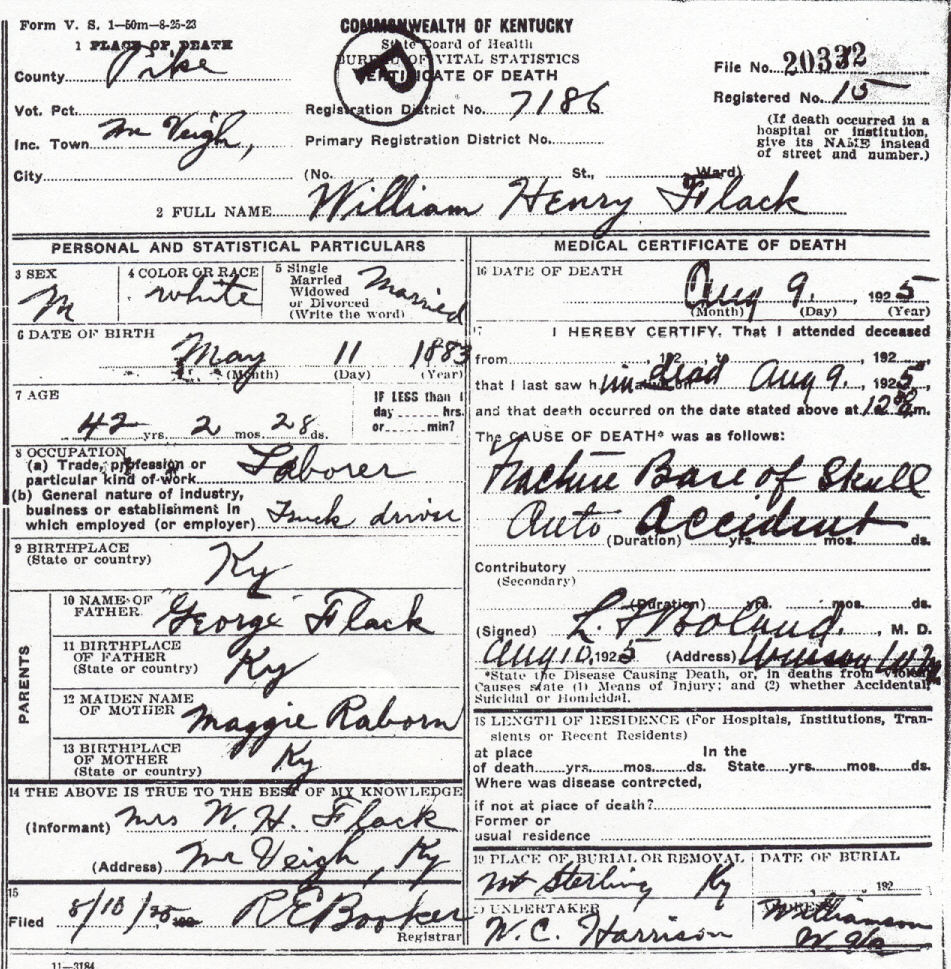 Form V. S. 1—50m—8-25-23
COMMONWEALTH OF KENTUCKY
State Board of Health
BUREAU OF VITAL STATISTICS
CERTIFICATE OF DEATH
1 PLACE OF DEATH
County Pike
File No. 20332
Registered No. 15
Vot. Pct.
Registration District No. 7186
(If death occurred in a
hospital or institution,
give its NAME instead
of street and number.)
Inc. Town Mc Veigh,
Primary Registration District No.
City (No. St., Ward)
2 FULL NAME William Henry Flack
PERSONAL AND STATISTICAL PARTICULARS
3 SEX
M
4 COLOR OR RACE
white
5 Single
Married
Widowed
or Divorced
(Write the word)
Married
6 DATE OF BIRTH
May 11 1883
(Month) (Day) (Year)
7 AGE
42 yrs. 2 mos. 28 ds.
IF LESS than 1
day hrs.
or min?
8 OCCUPATION
(a) Trade, profession or
particular kind of work Laborer
(b) General nature of industry,
business or establishment in
which employed (or employer) Truck driver
9 BIRTHPLACE
(State or country) Ky
PARENTS
10 NAME OF
FATHER George Flack
11 BIRTHPLACE
OF FATHER
(State or country) Ky
12 MAIDEN NAME
OF MOTHER Maggie Raborn
13 BIRTHPLACE
OF MOTHER
(State or country) Ky
14 THE ABOVE IS TRUE TO THE BEST OF MY KNOWLEDGE
(Informant) Mrs W. H. Flack
(Address) Mc Veigh, Ky
15
Filed 8/10/25 192 R E Booker
Registrar
11—3184
MEDICAL CERTIFICATE OF DEATH
16 DATE OF DEATH
Aug 9. , 1925
(Month) (Day) (Year)
17 I HEREBY CERTIFY, That I attended deceased
from , 192 , to , 192 ,
that I last saw him dead on Aug 9. , 1925
and that death occurred on the date stated above at m.
The CAUSE OF DEATH* was as follows:
Fracture Base of Skull
Auto Accident
(Duration) yrs. mos. ds.
Contributory
(Secondary)
(Duration) yrs. mos. ds.
(Signed) , M. D.
Aug 10, 1925 (Address)
*State the Disease Causing Death, or, in deaths from Violent
Causes state (1) Means of Injury; and (2) whether Accidental,
Suicidal or Homicidal.
18 LENGTH OF RESIDENCE (For Hospitals, Institutions, Tran-
sients or Recent Residents)
at place In the
of death yrs. mos. ds. State yrs. mos. ds.
Where was disease contracted,
if not at place of death?
Former or
usual residence
19 PLACE OF BURIAL OR REMOVAL
Mt Sterling Ky
DATE OF BURIAL
, 192
UNDERTAKER
W. C. Harrison
Williamson
W. Va